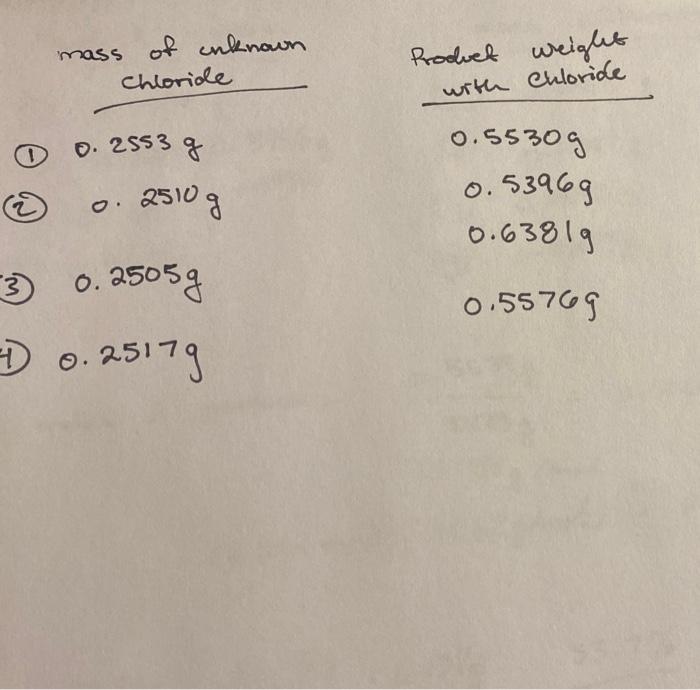 mass of unknown
chloride
① 0.2553 g
② 0.2510 g
③ 0.2505g
④ 0.2517g
Product weight
with Chloride
0.5530g
0.5396g
0.6381g
0.5576g